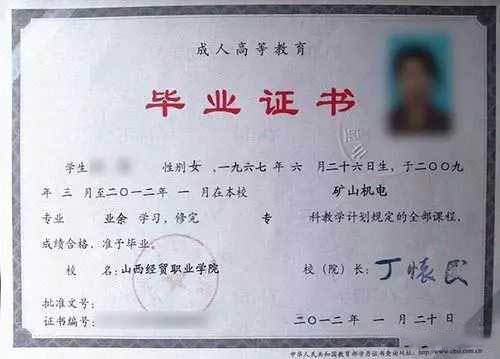 成人高等教育
毕业证书
学生 性别 女 ,一九六七 年 六 月二十六日生,于二〇〇九
年 三 月至二〇一二年 一 月在本校 矿山机电
专业 业余 学习,修完 专 科教学计划规定的全部课程,
成绩合格,准予毕业。
校 名:山西经贸职业学院 校(院)长:丁怀民
批准文号:
证书编号: 二〇一二年 一 月二十日
中华人民共和国教育部学历证书查询网址:http://www.chsi.com.cn